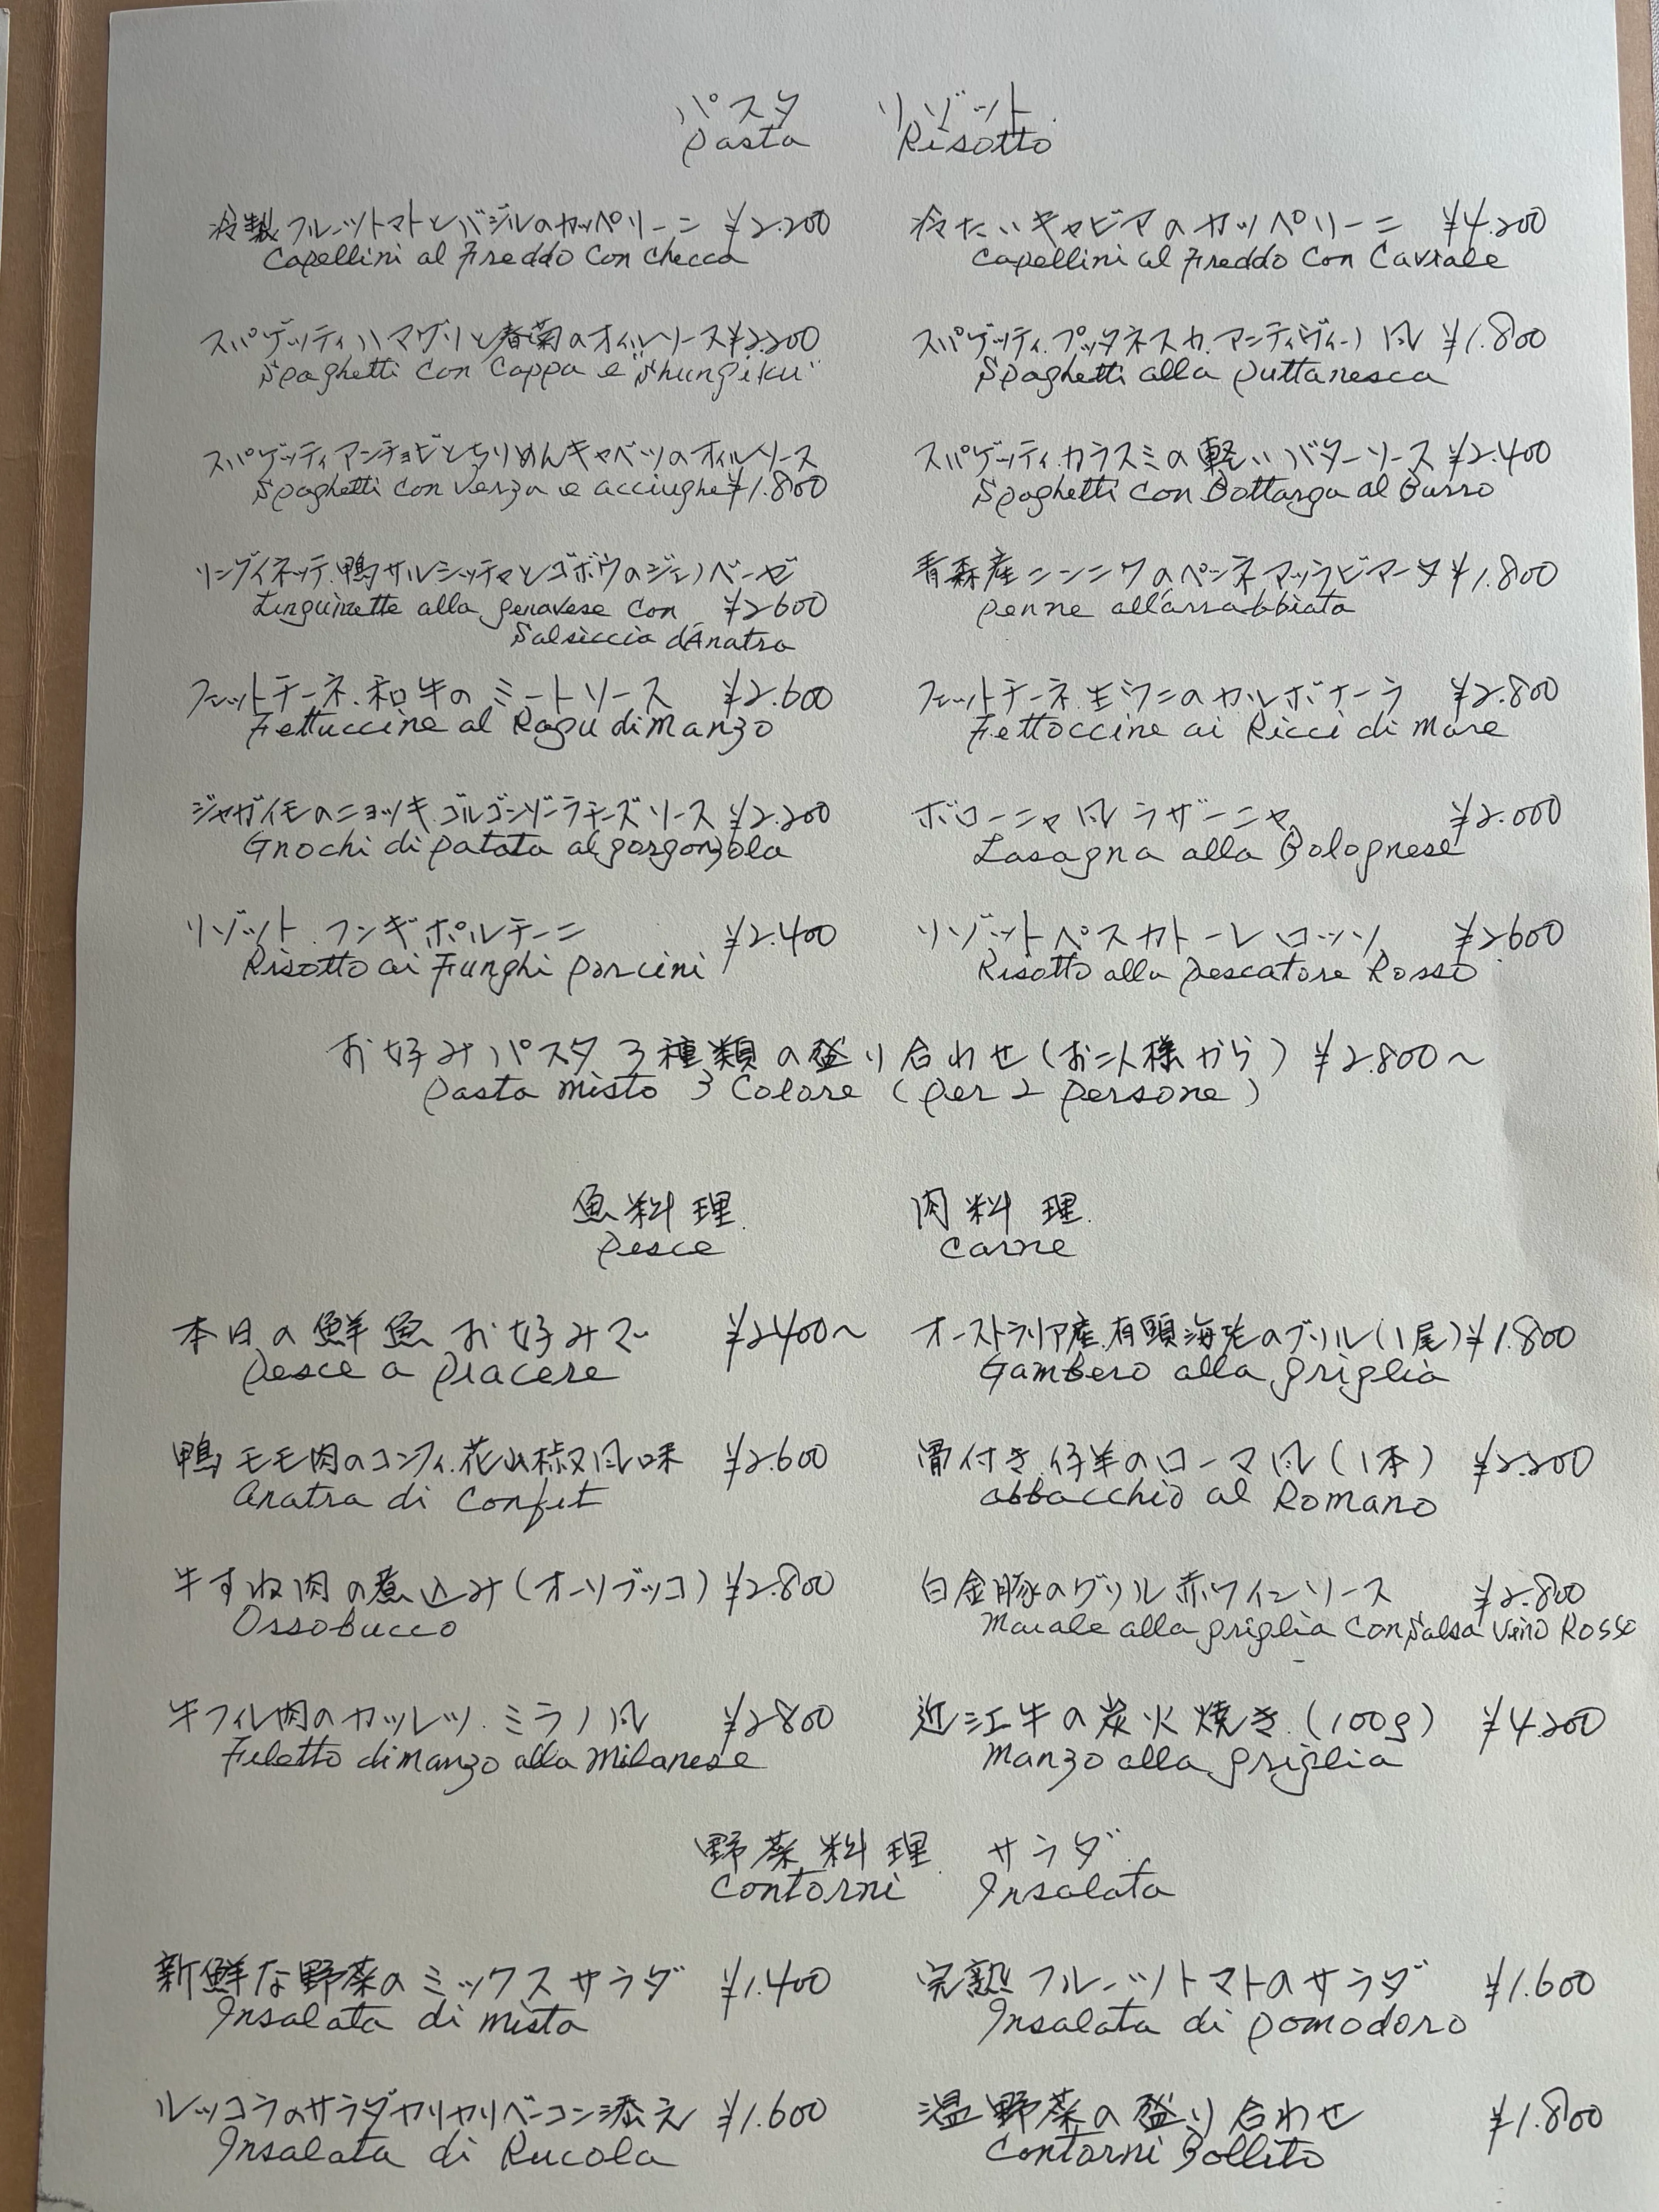 パスタ リゾット
Pasta Risotto
冷製フルーツトマトとバジルのカッペリーニ ¥2.200
Capellini al Freddo Con Checca
冷たいキャビアのカッペリーニ ¥4.200
Capellini al Freddo Con Caviale
スパゲッティハマグリと春菊のオイルソース ¥2.200
Spaghetti Con Cappa e "Shungiku"
スパゲッティ.プッタネスカ.アンティヴィーノ風 ¥1.800
Spaghetti alla puttanesca
スパゲッティアンチョビとちりめんキャベツのオイルソース
Spaghetti con Verza e acciughe ¥1.800
スパゲッティ.カラスミの軽いバターソース ¥2.400
Spaghetti con Bottarga al Burro
リングイネッテ.鴨サルシッチャとゴボウのジェノベーゼ
Linguinette alla genavese con ¥2600
Salsiccia d'Anatra
青森産ニンニクのペンネアッラビアータ ¥1.800
penne all'arrabbiata
フェットチーネ.和牛のミートソース ¥2.600
Fettuccine al Ragu di Manzo
フェットチーネ.生ウニのカルボナーラ ¥2.800
Fettoccine ai Ricci di Mare
ジャガイモのニョッキ.ゴルゴンゾーラチーズソース ¥2.200
Gnochi di patata al gorgonzola
ボローニャ風ラザーニャ ¥2.000
Lasagna alla Bolognese
リゾット.フンギポルチーニ ¥2.400
Risotto ai Funghi porcini
リゾットペスカトーレロッソ ¥2600
Risotto alla pescatore Rosso
お好みパスタ3種類の盛り合わせ(お二人様から) ¥2.800〜
pasta misto 3 Colore (per 2 persone)
魚料理 肉料理
Pesce Carne
本日の鮮魚お好みで ¥2400〜
Pesce a piacere
オーストラリア産.有頭海老のグリル(1尾) ¥1.800
Gambero alla griglia
鴨モモ肉のコンフィ.花山椒風味 ¥2.600
anatra di Confit
骨付き.仔羊のローマ風(1本) ¥2.200
abbacchio al Romano
牛すね肉の煮込み(オーソブッコ) ¥2.800
Ossobucco
白金豚のグリル赤ワインソース ¥2.800
Maiale alla griglia Con Salsa Vino Rosso
牛フィレ肉のカツレツ.ミラノ風 ¥2800
Filetto di manzo alla milanese
近江牛の炭火焼き.(100g) ¥4.200
manzo alla griglia
野菜料理 サラダ
Contorni Insalata
新鮮な野菜のミックスサラダ ¥1.400
Insalata di mista
完熟フルーツトマトのサラダ ¥1.600
Insalata di pomodoro
ルッコラのサラダカリカリベーコン添え ¥1.600
Insalata di Rucola
温野菜の盛り合わせ ¥1.800
Contorni Bollito